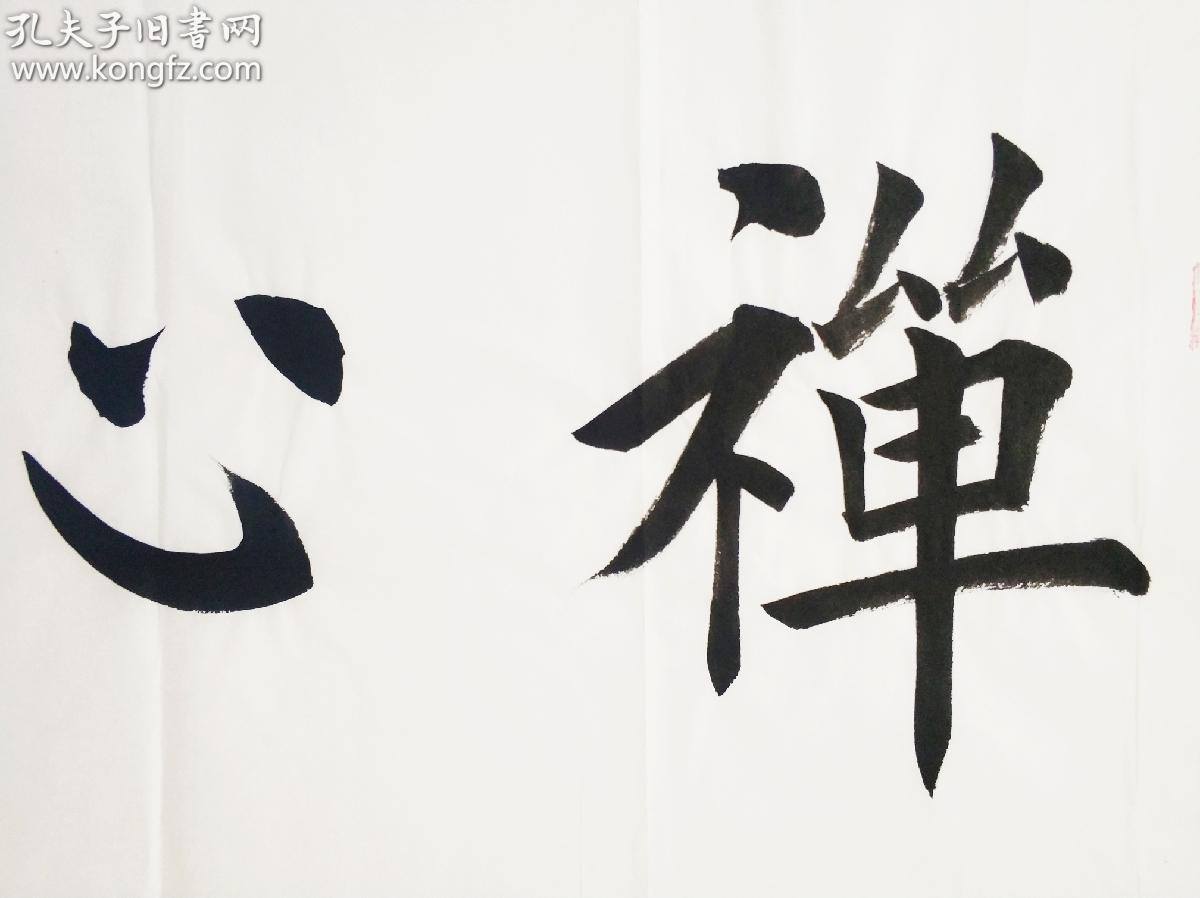 孔夫子旧書网
www.kongfz.com
禅心